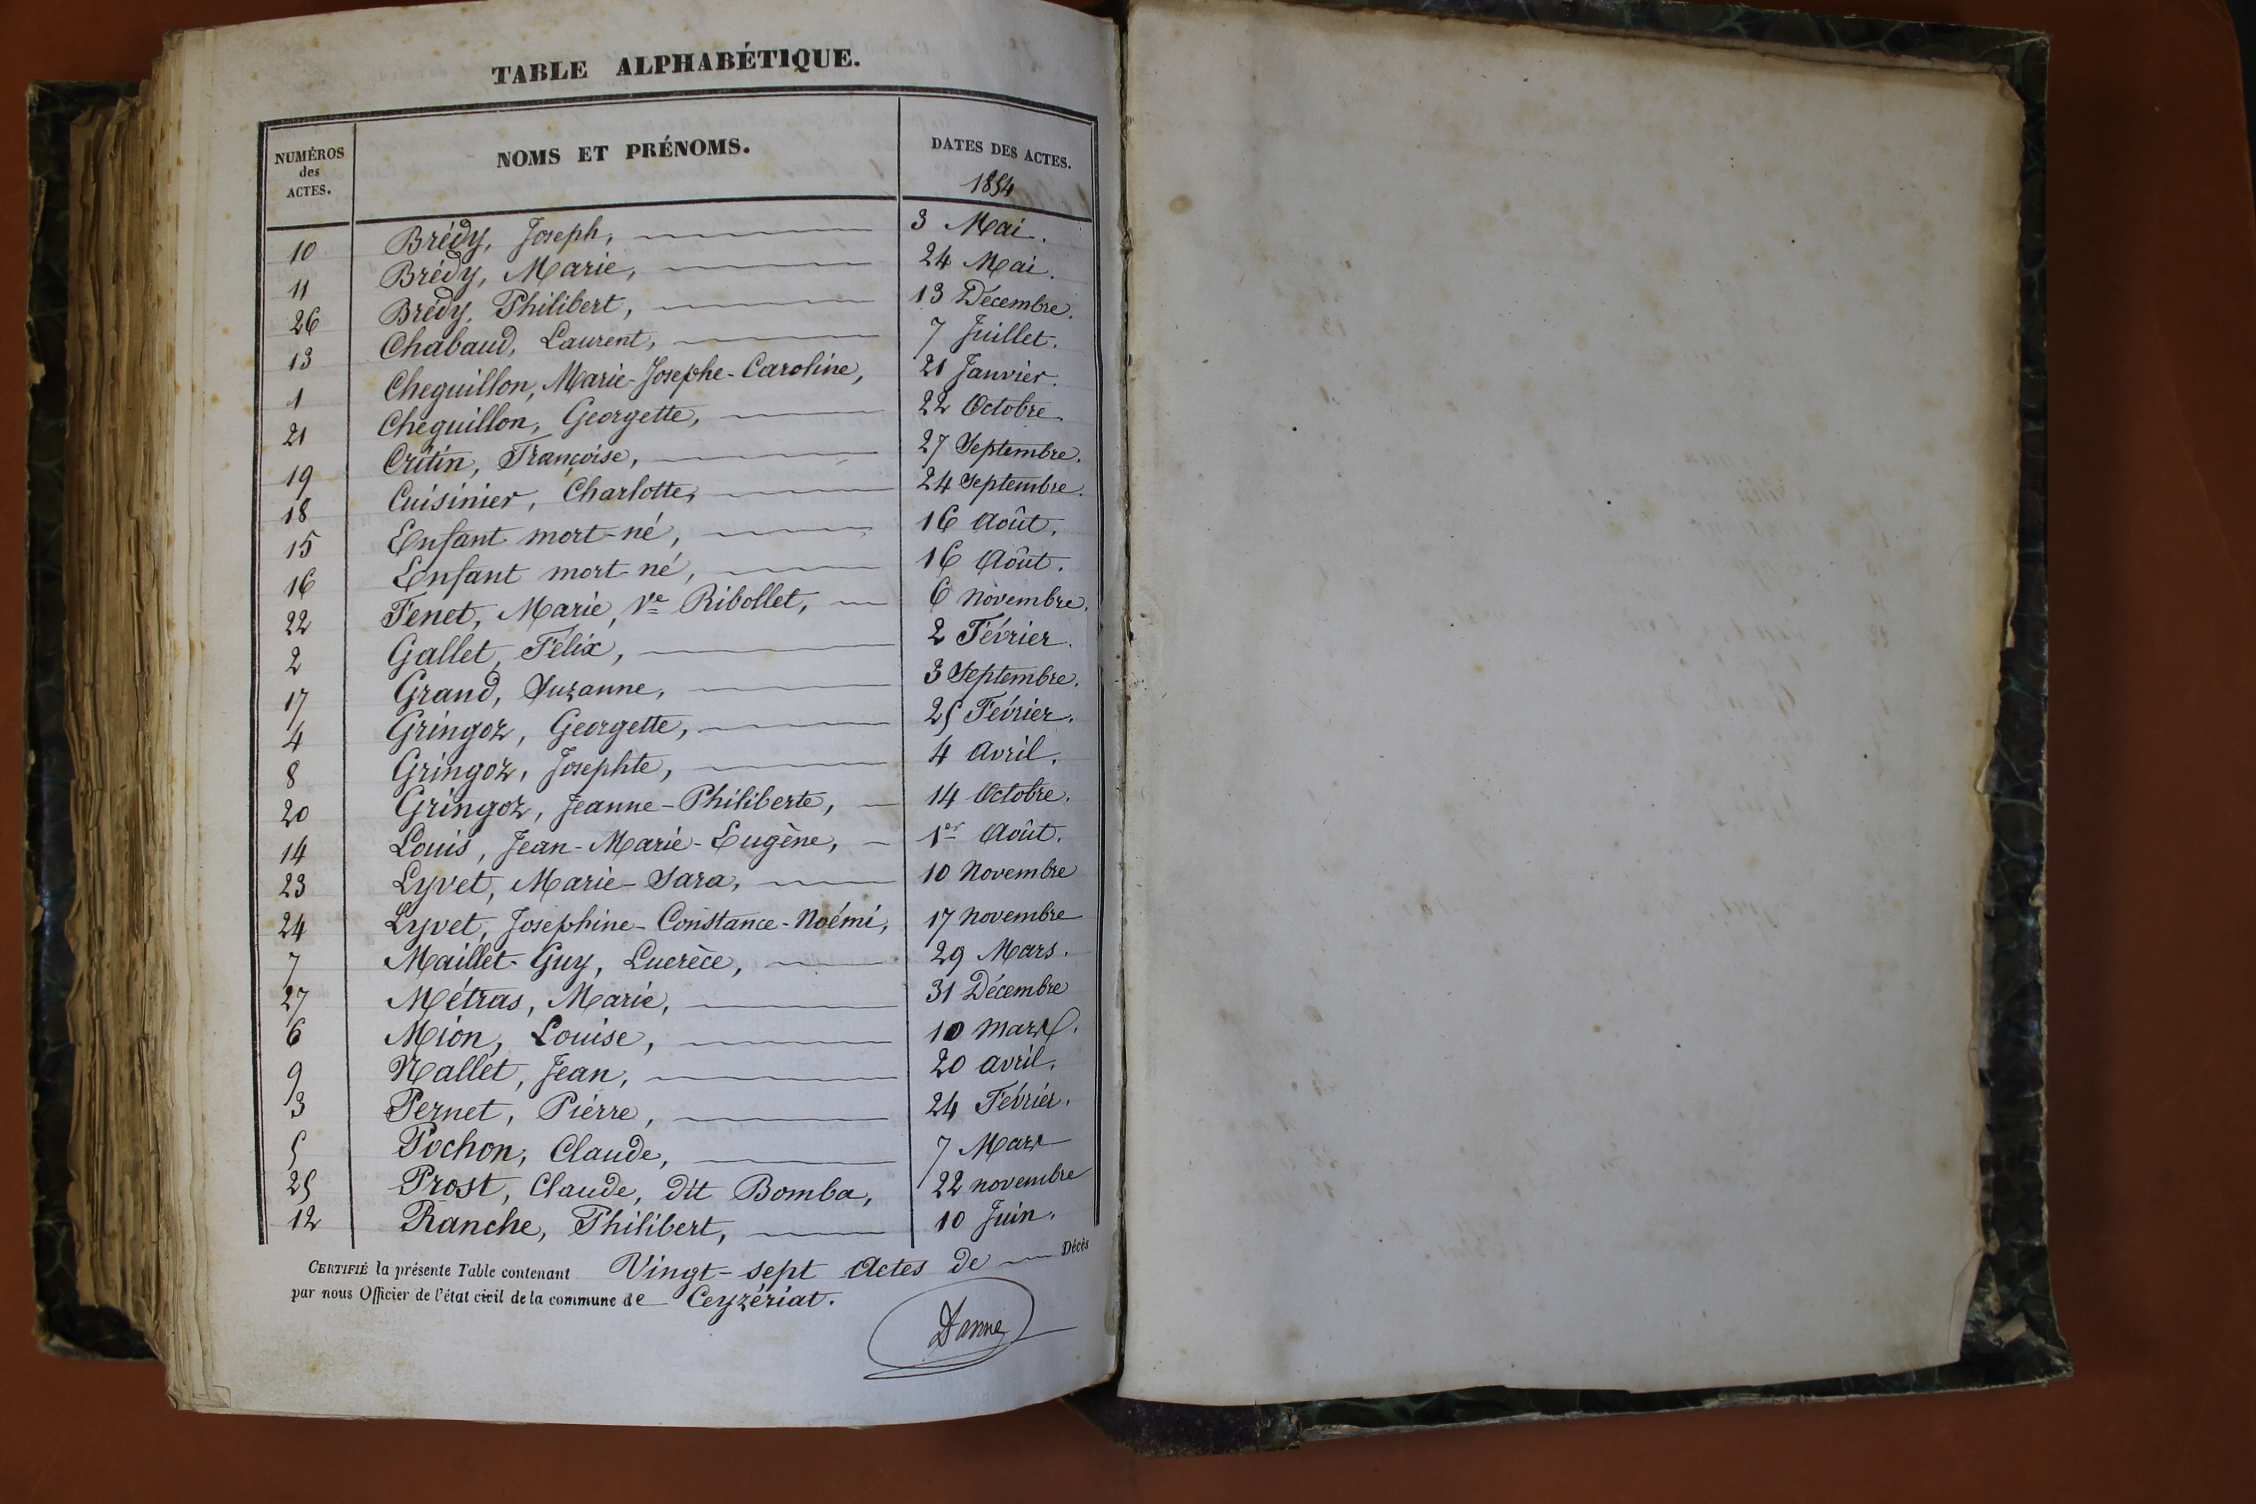 TABLE ALPHABÉTIQUE.
NUMÉROS des ACTES. NOMS ET PRÉNOMS. DATES DES ACTES.
1854
10 Brédy, Joseph, 3 Mai.
11 Brédy, Marie, 24 Mai.
26 Brédy, Philibert, 13 Décembre.
13 Chabaud, Laurent, 7 Juillet.
1 Cheguillon, Marie-Josephe-Caroline, 21 Janvier.
21 Cheguillon, Georgette, 22 Octobre
19 Critin, Françoise, 27 Septembre.
18 Cuisinier, Charlotte, 24 Septembre.
15 Enfant mort-né, 16 Août.
16 Enfant mort-né, 16 Août.
22 Fenet, Marie, Ve Ribollet, 6 Novembre.
2 Gallet, Félix, 2 Février.
17 Grand, Suzanne, 3 Septembre.
4 Gringoz, Georgette, 25 Février.
8 Gringoz, Josephte, 4 Avril.
20 Gringoz, Jeanne-Philiberte, 14 Octobre.
14 Louis, Jean-Marie-Eugène, 1er Août.
23 Lyvet, Marie-Sara, 10 Novembre
24 Lyvet, Josephine-Constance-Noémi, 17 Novembre
7 Maillet-Guy, Lucrèce, 29 Mars.
27 Métras, Marie, 31 Décembre
6 Mion, Louise, 10 Mars.
9 Nallet, Jean, 20 avril.
3 Pernet, Pierre, 24 Février.
5 Pochon, Claude, 7 Mars
25 Prost, Claude, dit Bomba, 22 novembre
12 Ranche, Philibert, 10 Juin.
CERTIFIÉ la présente Table contenant Vingt-sept Actes de Décès
par nous Officier de l'état civil de la commune de Ceyzériat.